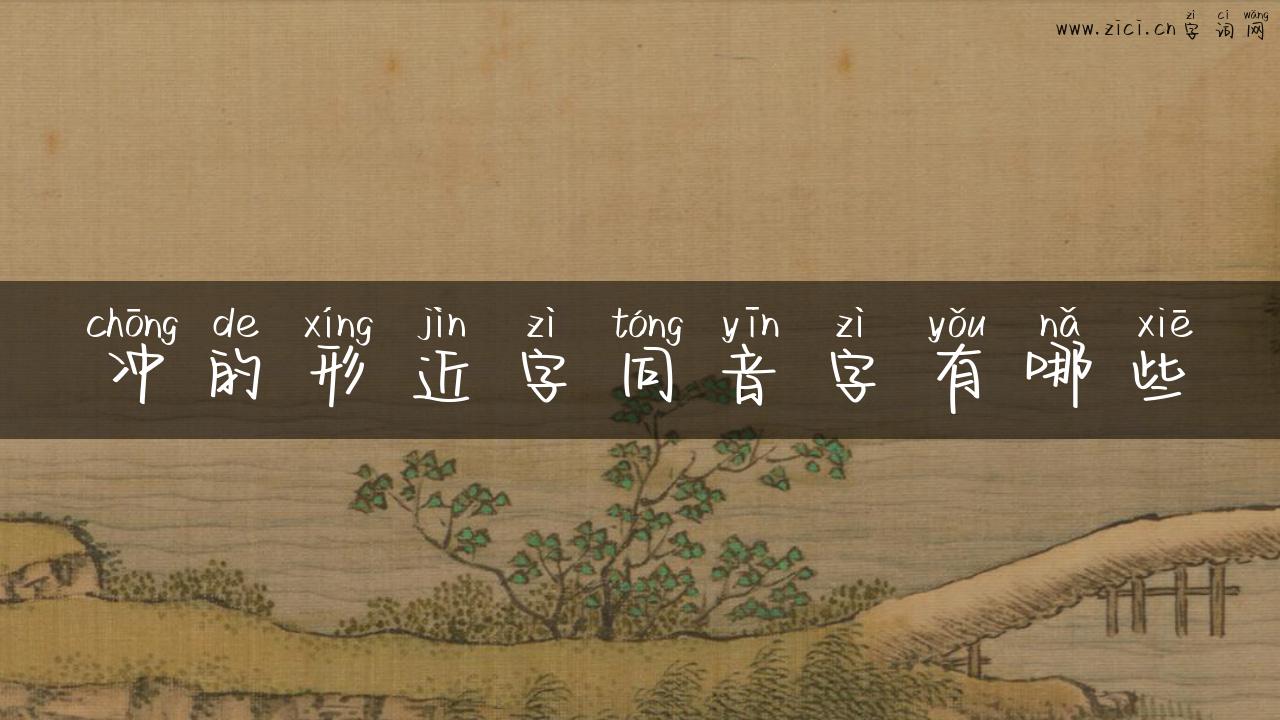 zì cí wǎng
www.zici.cn 字词网
chōng de xíng jìn zì tóng yīn zì yǒu nǎ xiē
冲的形近字同音字有哪些